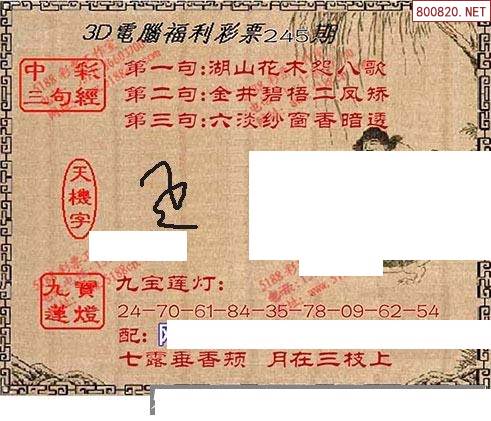 800820.NET
3D電腦福利彩票245期
中彩
三句經
第一句:湖山花木怨八歌
第二句:金井碧梧二凤矫
第三句:六淡纱窗香暗透
天機字
九寶蓮燈
九宝莲灯:
24-70-61-84-35-78-09-62-54
配:
七露垂香颊 月在三枝上